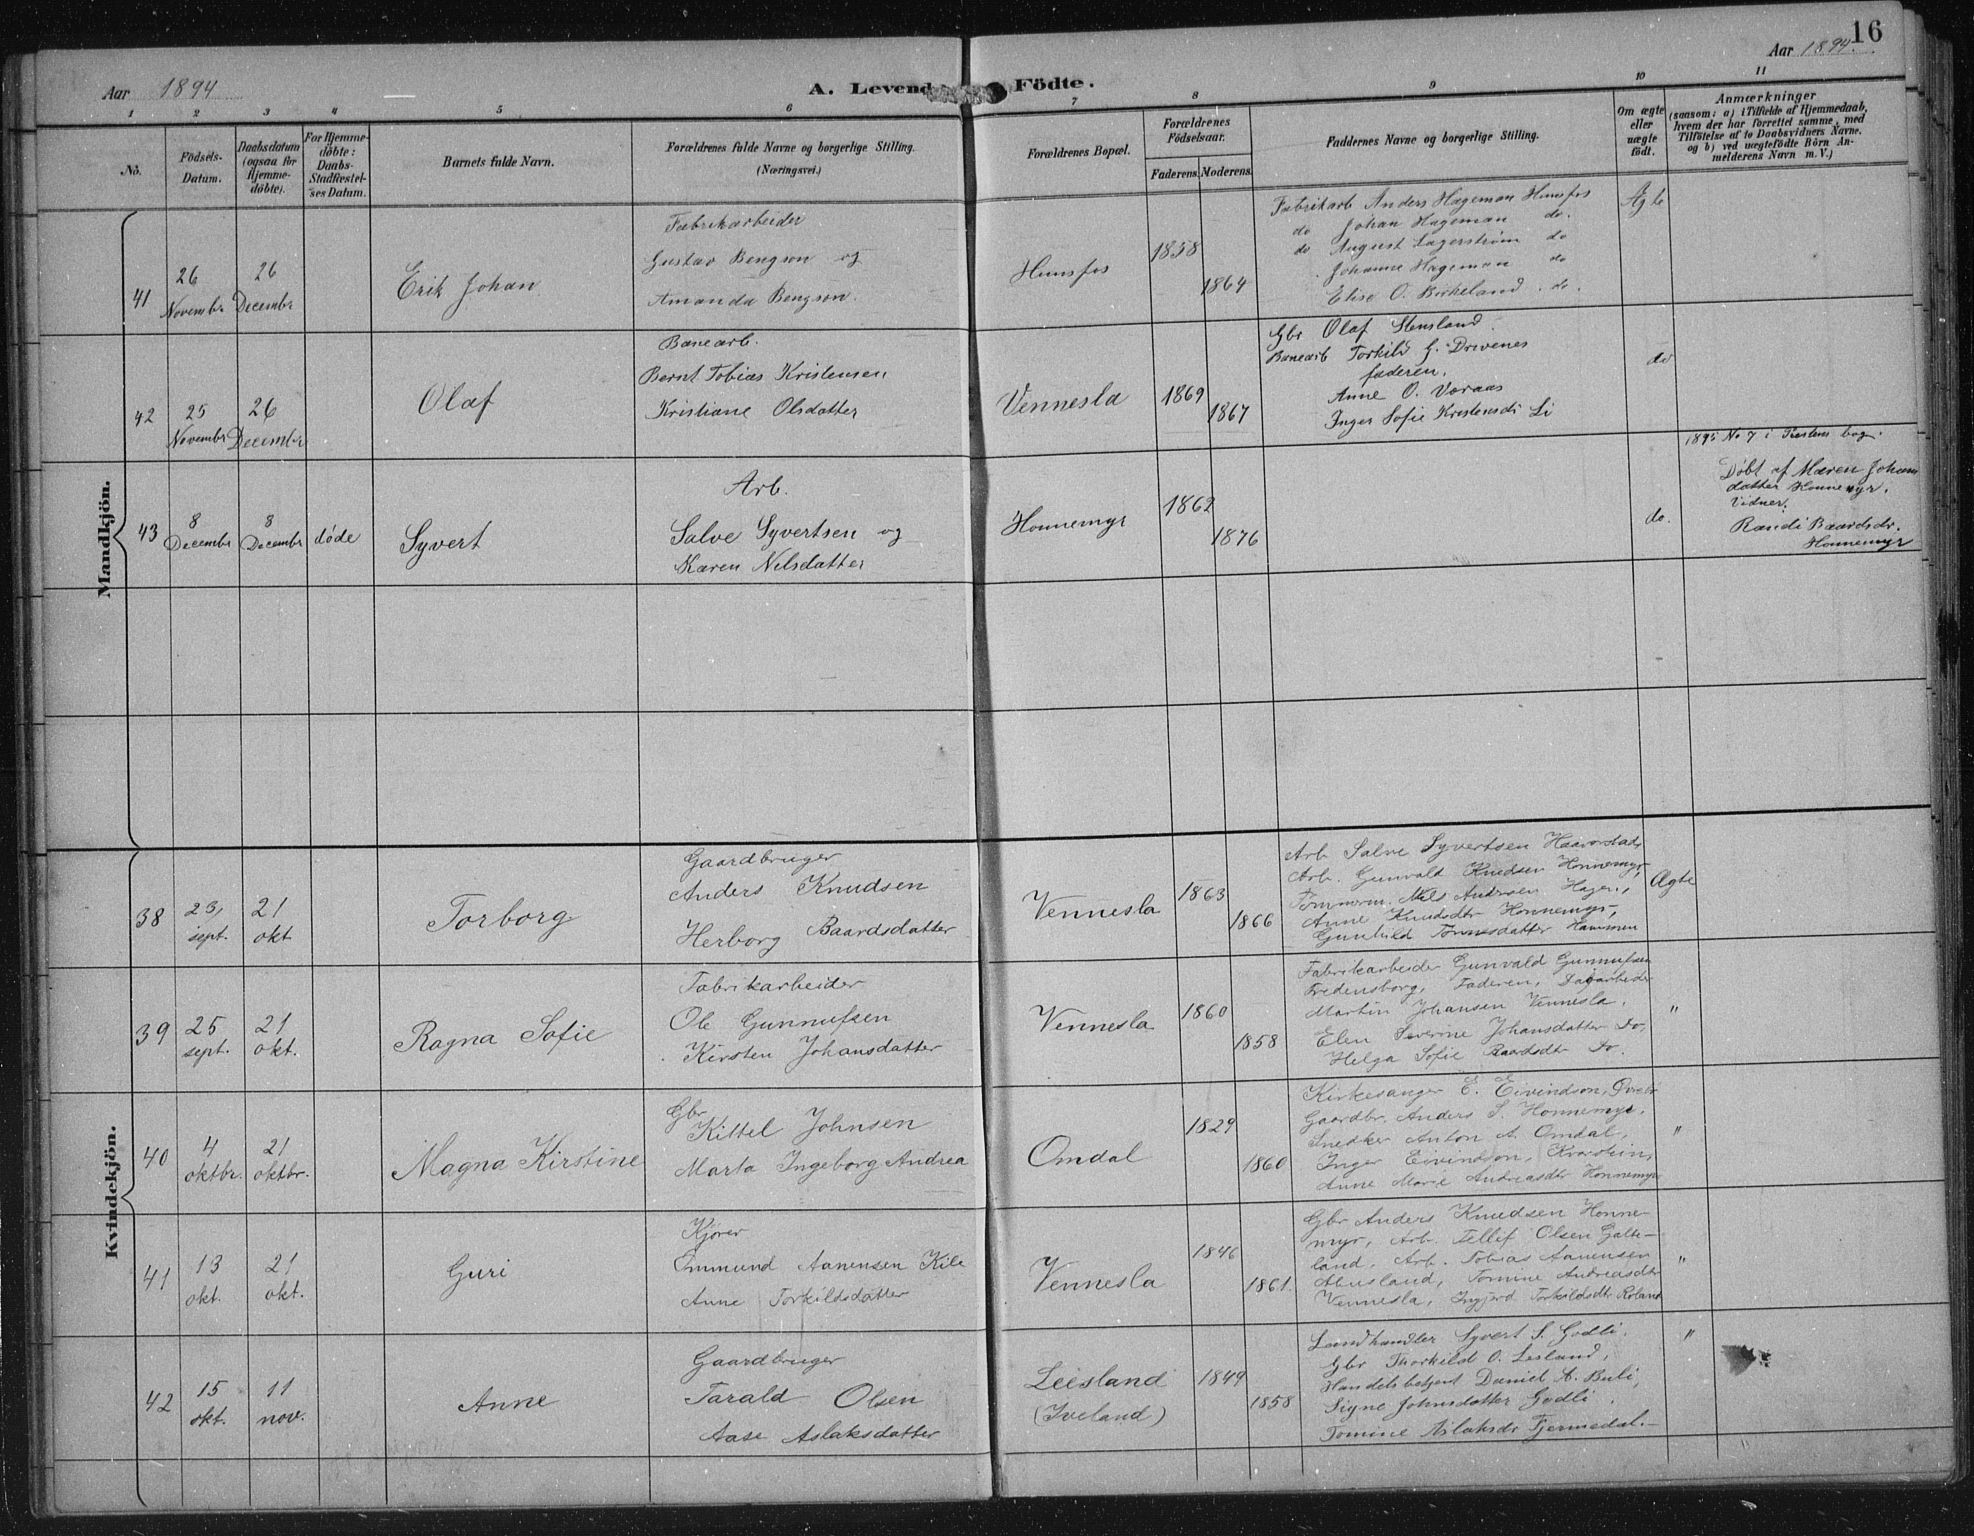 16
Aar 1894
A. Levende Födte.
Aar 1894
1 2 3 4 5 6 7 8 9 10 11
No.
Födsels-Datum.
Daabsdatum (ogsaa för Hjemmedöbte).
For Hjemmedöbte: Daabs-Stadfæstelses Datum.
Barnets fulde Navn.
Forældrenes fulde Navne og borgerlige Stilling.
(Næringsvei.)
Forældrenes Bopæl.
Forældrenes Födselsaar.
Faderens. Moderens.
Faddernes Navne og borgerlige Stilling.
Om ægte eller uægte födt.
Anmærkninger
(saasom: a) i Tilfælde af Hjemmedaab, hvem der har forrettet samme, med Tilföielse af to Daabsvidners Navne. og b) ved uægtefödte Börn Anmelderens Navn m. V.)
Mandkjön.
41
26 Novembr
26 Decembr
Erik Johan
Fabrikarbeider
Gustav Bengson og
Amanda Bengson.
Hunsfos
1858
1864
Fabrikarb Anders Hageman Hunsfos
do Johan Hageman do.
do August Lagerstrøm do
Johanne Hageman do
Elise O. Birkeland. do.
Ægte
42
25 Novembr
26 Decembr
Olaf
Banearb.
Bernt Tobias Kristensen
Kristiane Olsdatter
Vennesla
1869
1867
Gbr Olaf Stensland.
Banearb Torkild G. Drivenes
faderen.
Anne O. Voraas
Inger Sofie Kristensdr Li
do
43
8 Decembr
8 Decembr
døde
Syvert
Arb.
Salve Syvertsen og
Karen Nilsdatter
Honnemyr
1862
1876
do.
1895 No 7 i bog.
Døbt af Maren Johans
datter Honnemyr.
Vidner.
Randi Baardsdr.
Honnemyr
Kvindekjön.
38
23, sept.
21 okt
Torborg
Gaardbruger
Anders Knudsen
Herborg Baardsdatter
Vennesla
1863
1866
Arb Salve Syvertsen Haavorstad,
Arb. Gunvald Knudsen Honnemyr,
Tømmerm. Nils Andersen Hagen,
Anne Knudsdtr Honnemyr,
Gunhild Tønnesdatter Hammen
Ægte
39
25 sept.
21 okt.
Ragna Sofie
Fabrikarbeider
Ole Gunnufsen
Kirsten Johansdatter
Vennesla
1860
1858
Fabrikarbeider Gunvald Gunnufsen
Fredensborg, Faderen, Dagarbeider
Martin Johansen Vennesla,
Elen Severine Johansdatter do,
Helga Sofie Baardsdtr do.
"
40
4 oktbr.
21 oktbr.
Magna Kirstine
Gbr
Kittel Johnsen
Marta Ingeborg Andrea
Omdal
1829
1860
Kirkesanger E. Eivindson,
Gaardbr. Anders S. Honnemyr,
Snedker Anton A. Omdal,
Inger Eivindson, Kvarstein,
Anne Marie Andreasdtr Honnemyr
"
41
13 okt.
21 okt.
Guri
Kjører
Ommund Aanensen Kile
Anne Torkildsdatter
Vennesla
1846
1861.
Gbr Anders Knudsen Honne-
myr, Arb. Tellef Olsen Galte-
land, Arb. Tobias Aanensen
Abusland, Tomine Andreasdtr
Vennesla, Ingjerd Torkildsdtr Roland
"
42
15 okt.
11 nov.
Anne
Gaardbruger
Tarald Olsen
Aase Aslaksdatter
Leesland
(Iveland)
1849
1858
Landhandler Syvert S. Godli.
Gbr Thorkild O. Lesland,
Handelsbetjent Daniel A. Buli,
Signe Johnsdatter Godli,
Tomine Aslaksdr Fjermedal.
"